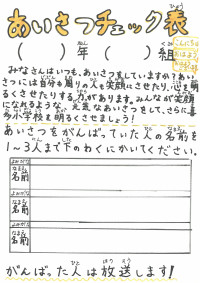 あいさつチェック表
( )年( )組
みなさんはいつも、あいさつをしていますか？あい
さつには自分も周りの人も笑顔にさせたり、心を明
るくさせたりする力があります。みんなが笑顔
になれるような、元気なあいさつをして、さらに喜
多小学校を明るくさせましょう！
あいさつをがんばっていた人の名前を
1～3人まで下のわくにかいてください。
名前
名前
名前
がんばった人は放送します！